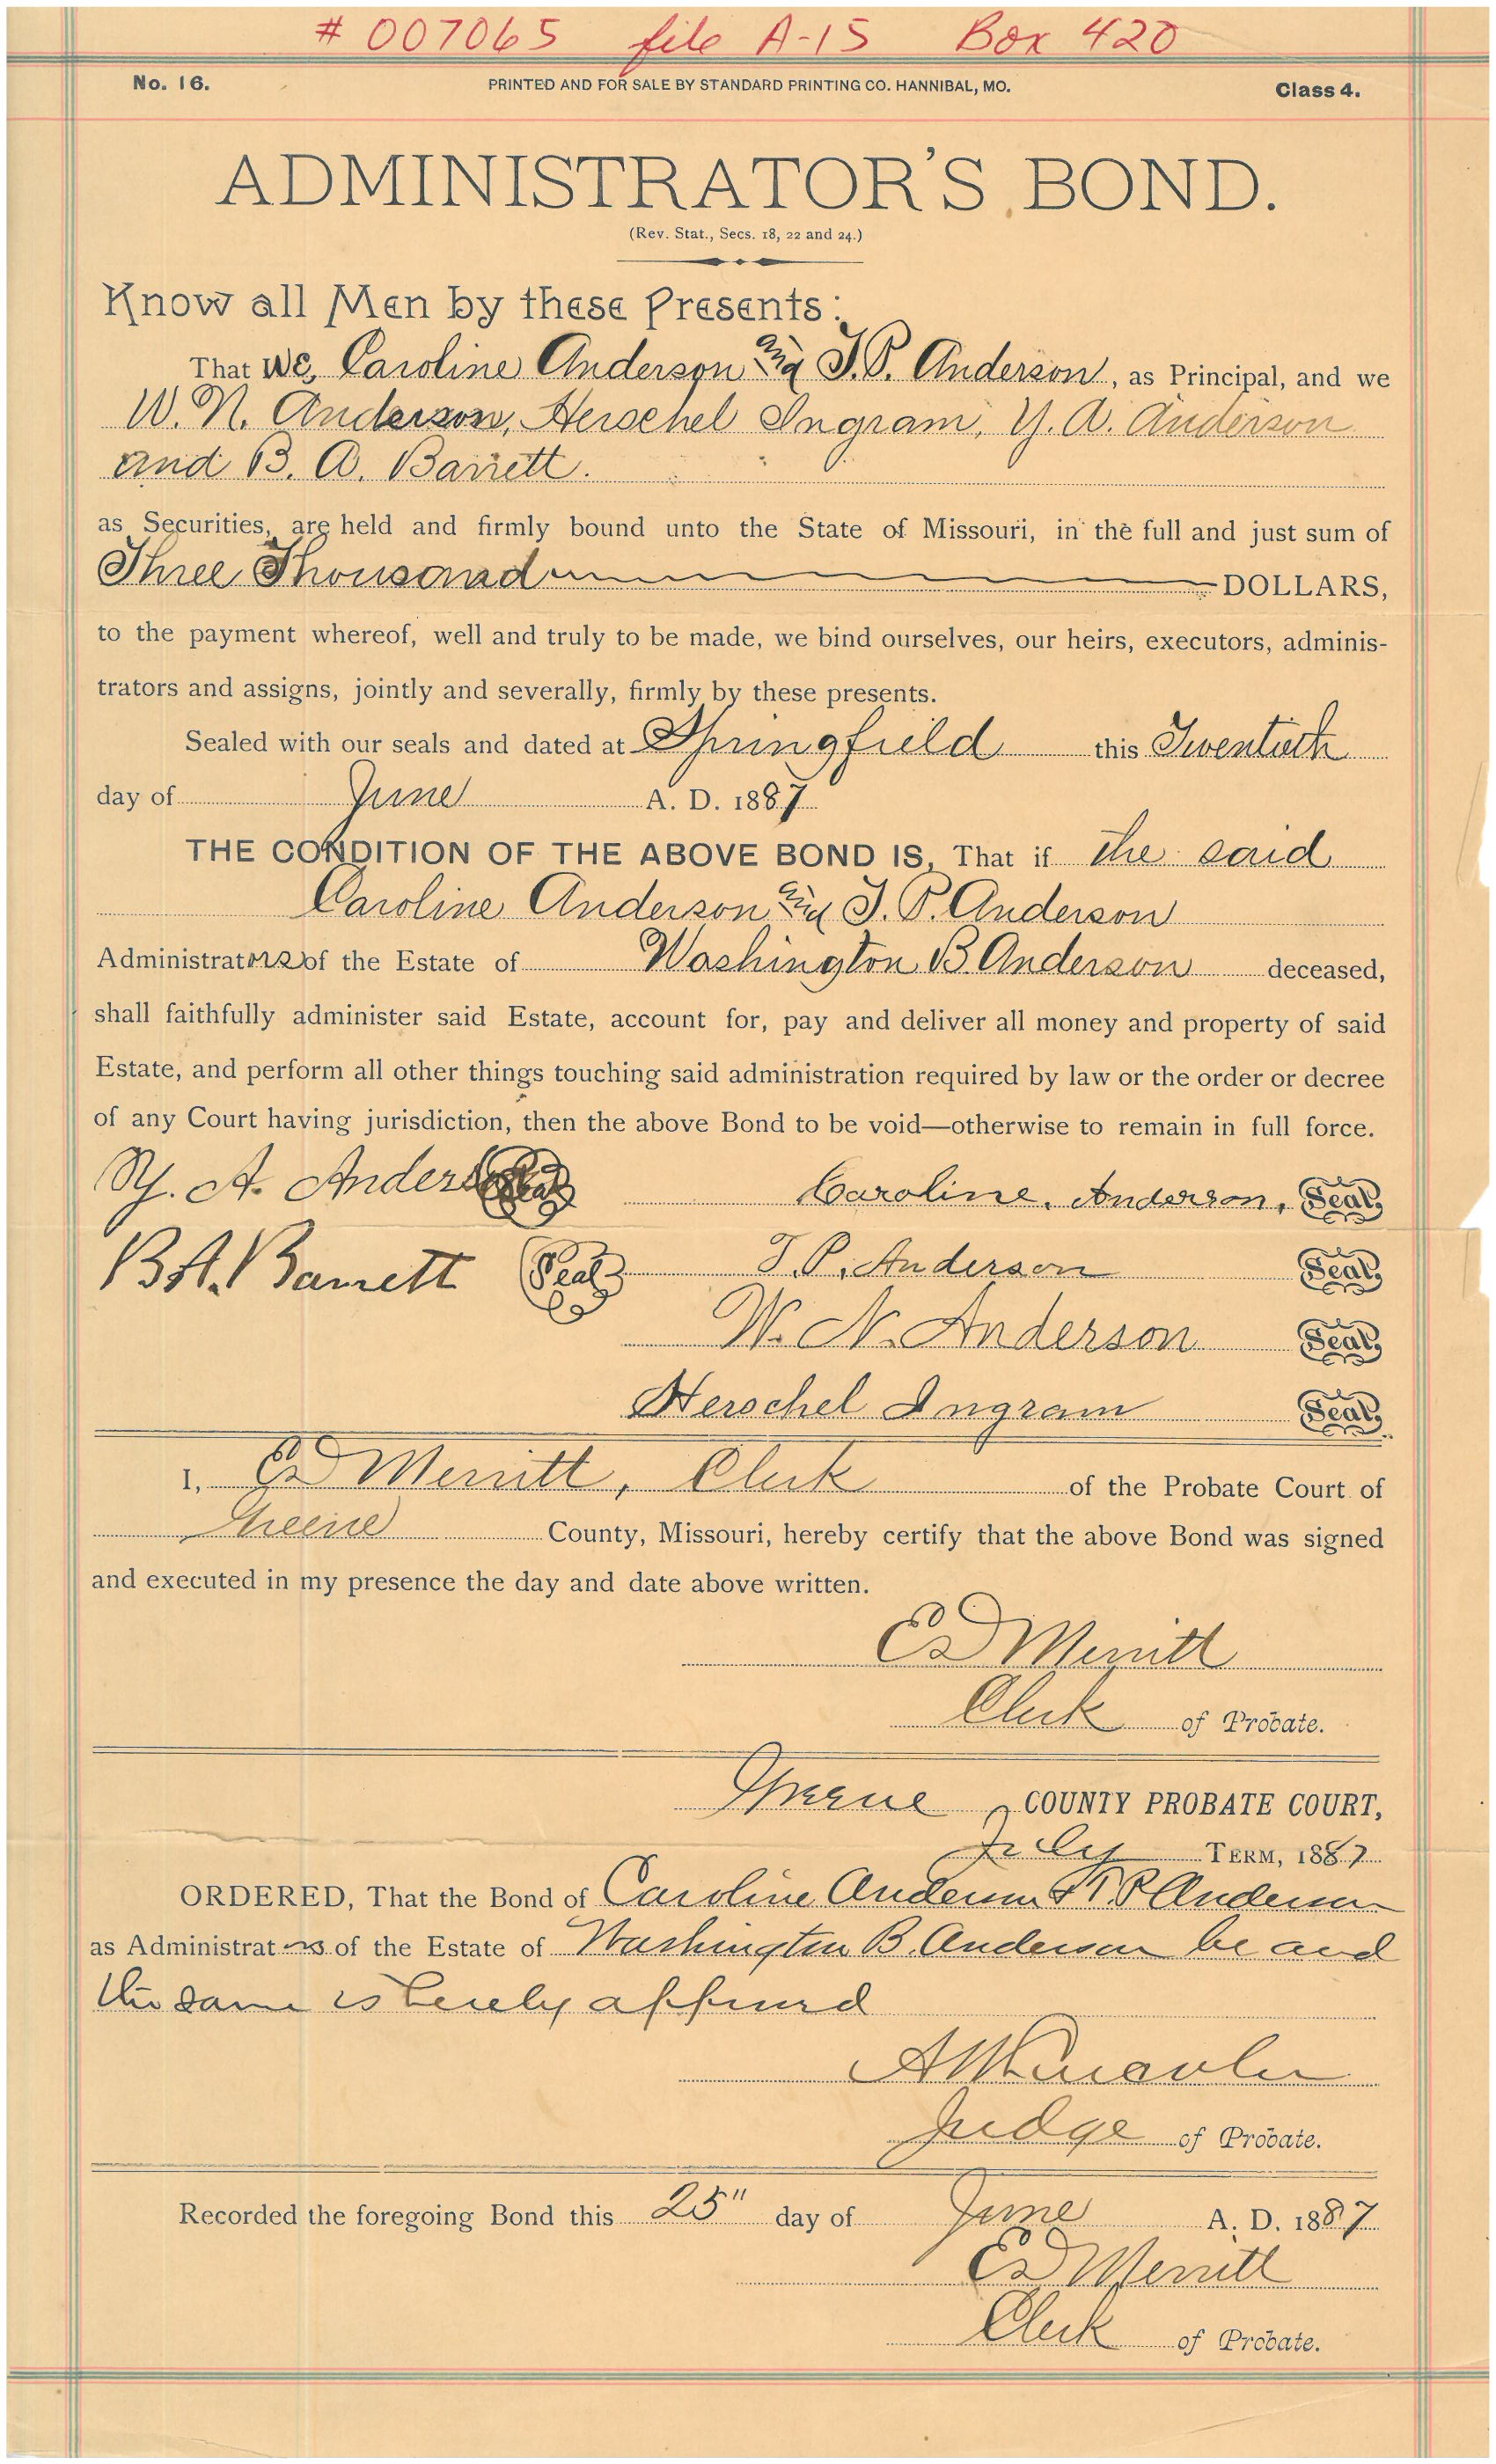 # 007065 file A-15 Box 420
No. 16. PRINTED AND FOR SALE BY STANDARD PRINTING CO. HANNIBAL, MO. Class 4.
ADMINISTRATOR'S BOND.
(Rev. Stat., Secs. 18, 22 and 24.)
Know all Men by these Presents:
That We, Caroline Anderson and T.P. Anderson, as Principal, and we
W. N. Anderson, Herschel Ingram, Y. A. Anderson
and B. A. Barrett.
as Securities, are held and firmly bound unto the State of Missouri, in the full and just sum of
Three Thousand DOLLARS,
to the payment whereof, well and truly to be made, we bind ourselves, our heirs, executors, adminis-
trators and assigns, jointly and severally, firmly by these presents.
Sealed with our seals and dated at Springfield this Twentieth
day of June A. D. 1887
THE CONDITION OF THE ABOVE BOND IS, That if the said
Caroline Anderson and T. P. Anderson
Administrators of the Estate of Washington B. Anderson deceased,
shall faithfully administer said Estate, account for, pay and deliver all money and property of said
Estate, and perform all other things touching said administration required by law or the order or decree
of any Court having jurisdiction, then the above Bond to be void—otherwise to remain in full force.
Y. A. Anderson Seal Caroline. Anderson, Seal
B.A. Barrett Seal T. P. Anderson Seal
W. N. Anderson Seal
Herschel Ingram Seal
I, ED Merritt, Clerk of the Probate Court of
Greene County, Missouri, hereby certify that the above Bond was signed
and executed in my presence the day and date above written.
ED Merritt
Clerk of Probate.
Greene COUNTY PROBATE COURT,
July TERM, 1887
ORDERED, That the Bond of Caroline Anderson & T P Anderson
as Administrators of the Estate of Washington B. Anderson be and
the same is hereby approved
Judge of Probate.
Recorded the foregoing Bond this 25" day of June A. D. 1887
ED Merritt
Clerk of Probate.